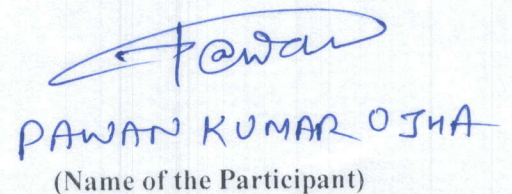 P@wan
PAWAN KUMAR OJHA
(Name of the Participant)